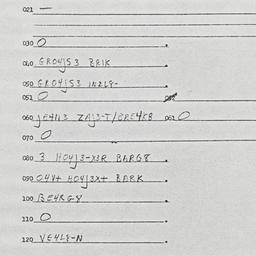 021 —
030 O
040 GR04JS3 BRIK
050 GR04JS3 INZL8-
051 O
060 JE4N3 ZAJ3-T/BRE4KB 061 O
070 O
080 3 HO4J3-X3R BARG8
090 O4V+ HO4J3X+ BARK
100 BE4RG8
110 O
120 VE4L8-N